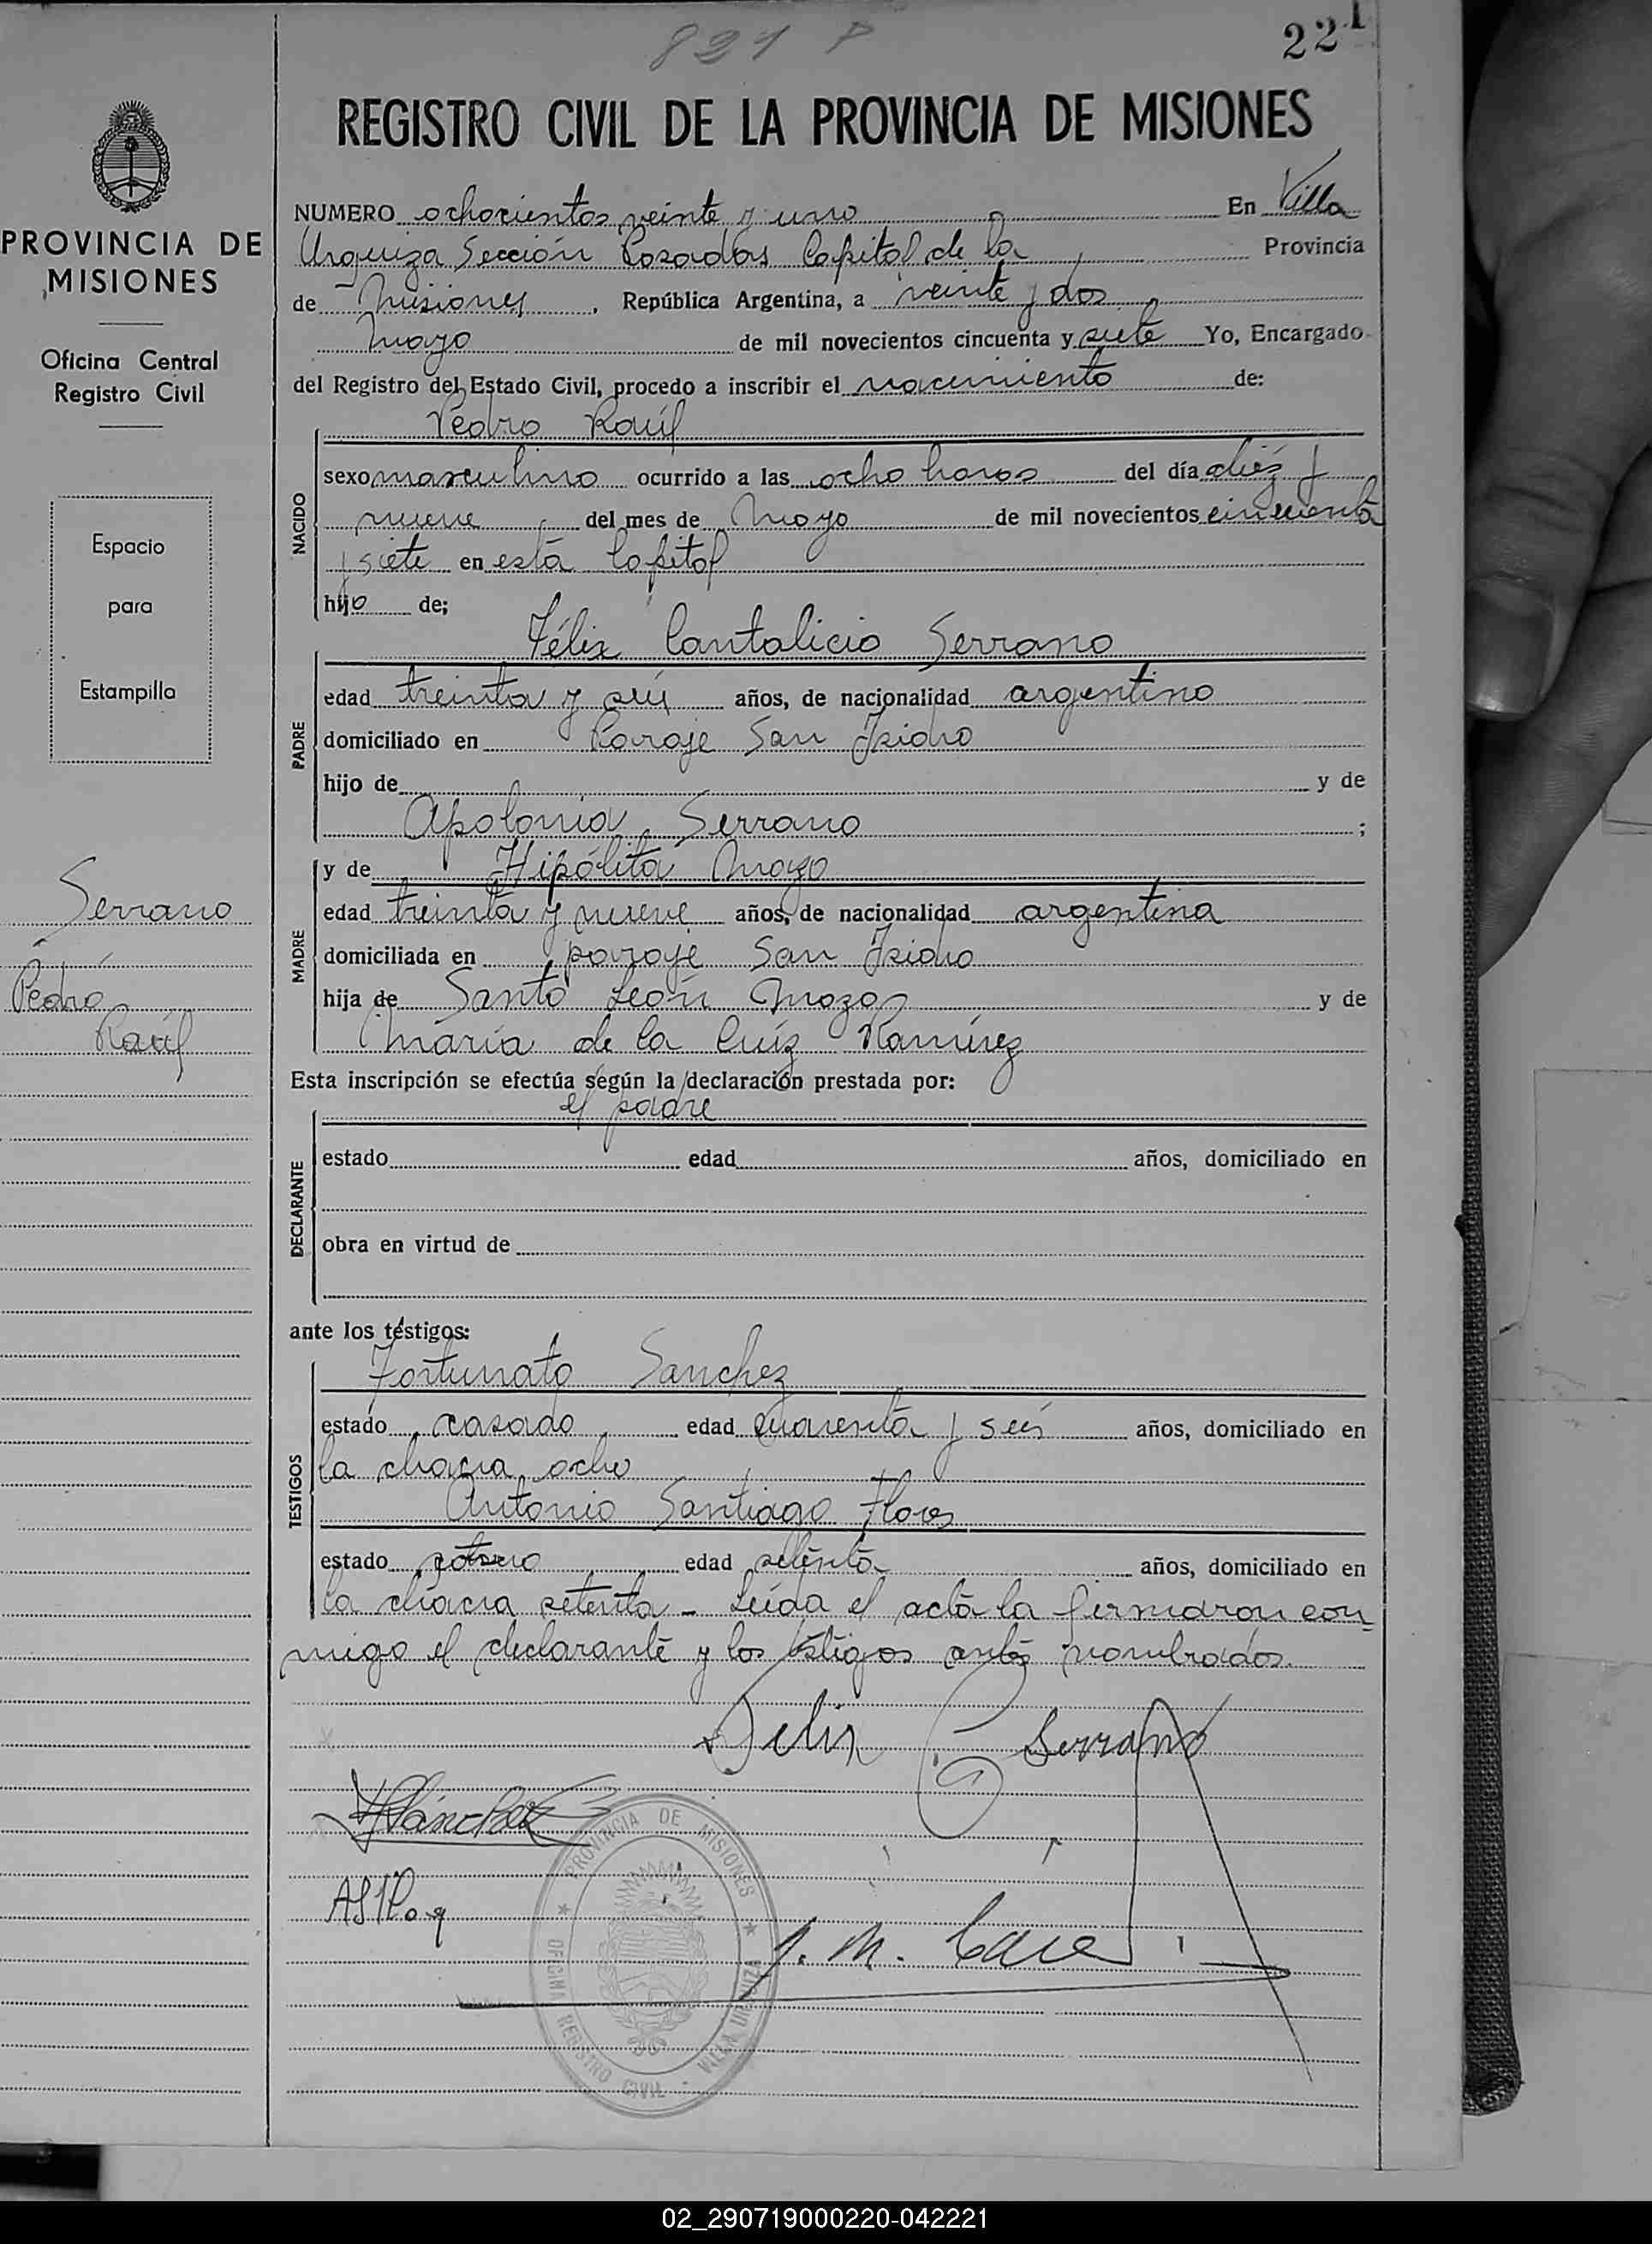 821 P
221
REGISTRO CIVIL DE LA PROVINCIA DE MISIONES
PROVINCIA DE
MISIONES
Oficina Central
Registro Civil
Espacio
para
Estampilla
Serrano
Pedro
Raúl
NUMERO ochocientos veinte y uno En Villa
Urquiza Sección Posadas Capital de la Provincia
de Misiones, República Argentina, a veinte y dos
mayo de mil novecientos cincuenta y siete Yo, Encargado
del Registro del Estado Civil, procedo a inscribir el nacimiento de:
Pedro Raúl
NACIDO
sexo masculino ocurrido a las ocho horas del día diéz y
nueve del mes de Mayo de mil novecientos cincuenta
y siete en está Capital
hijo de;
Félix Cantalicio Serrano
PADRE
edad treinta y seis años, de nacionalidad argentino
domiciliado en Paraje San Isidro
hijo de y de
Apolonia Serrano ;
MADRE
y de Hipólita Mozo
edad treinta y nueve años, de nacionalidad argentina
domiciliada en paraje San Isidro
hija de Santo León Mozo y de
María de la Cruz Ramírez
Esta inscripción se efectúa según la declaración prestada por:
el padre
DECLARANTE
estado edad años, domiciliado en
obra en virtud de
ante los testigos:
Fortunato Sanchez
TESTIGOS
estado casado edad cuarenta y seis años, domiciliado en
la chacra ocho
Antonio Santiago Flores
estado edad setenta años, domiciliado en
la chacra setenta - Leída el acta la firmaron con
migo el declarante y los testigos antes nombrados.
Felix C Serrano
Sánchez
PROVINCIA DE MISIONES
OFICINA REGISTRO CIVIL - VILLA URQUIZA
02_290719000220-042221